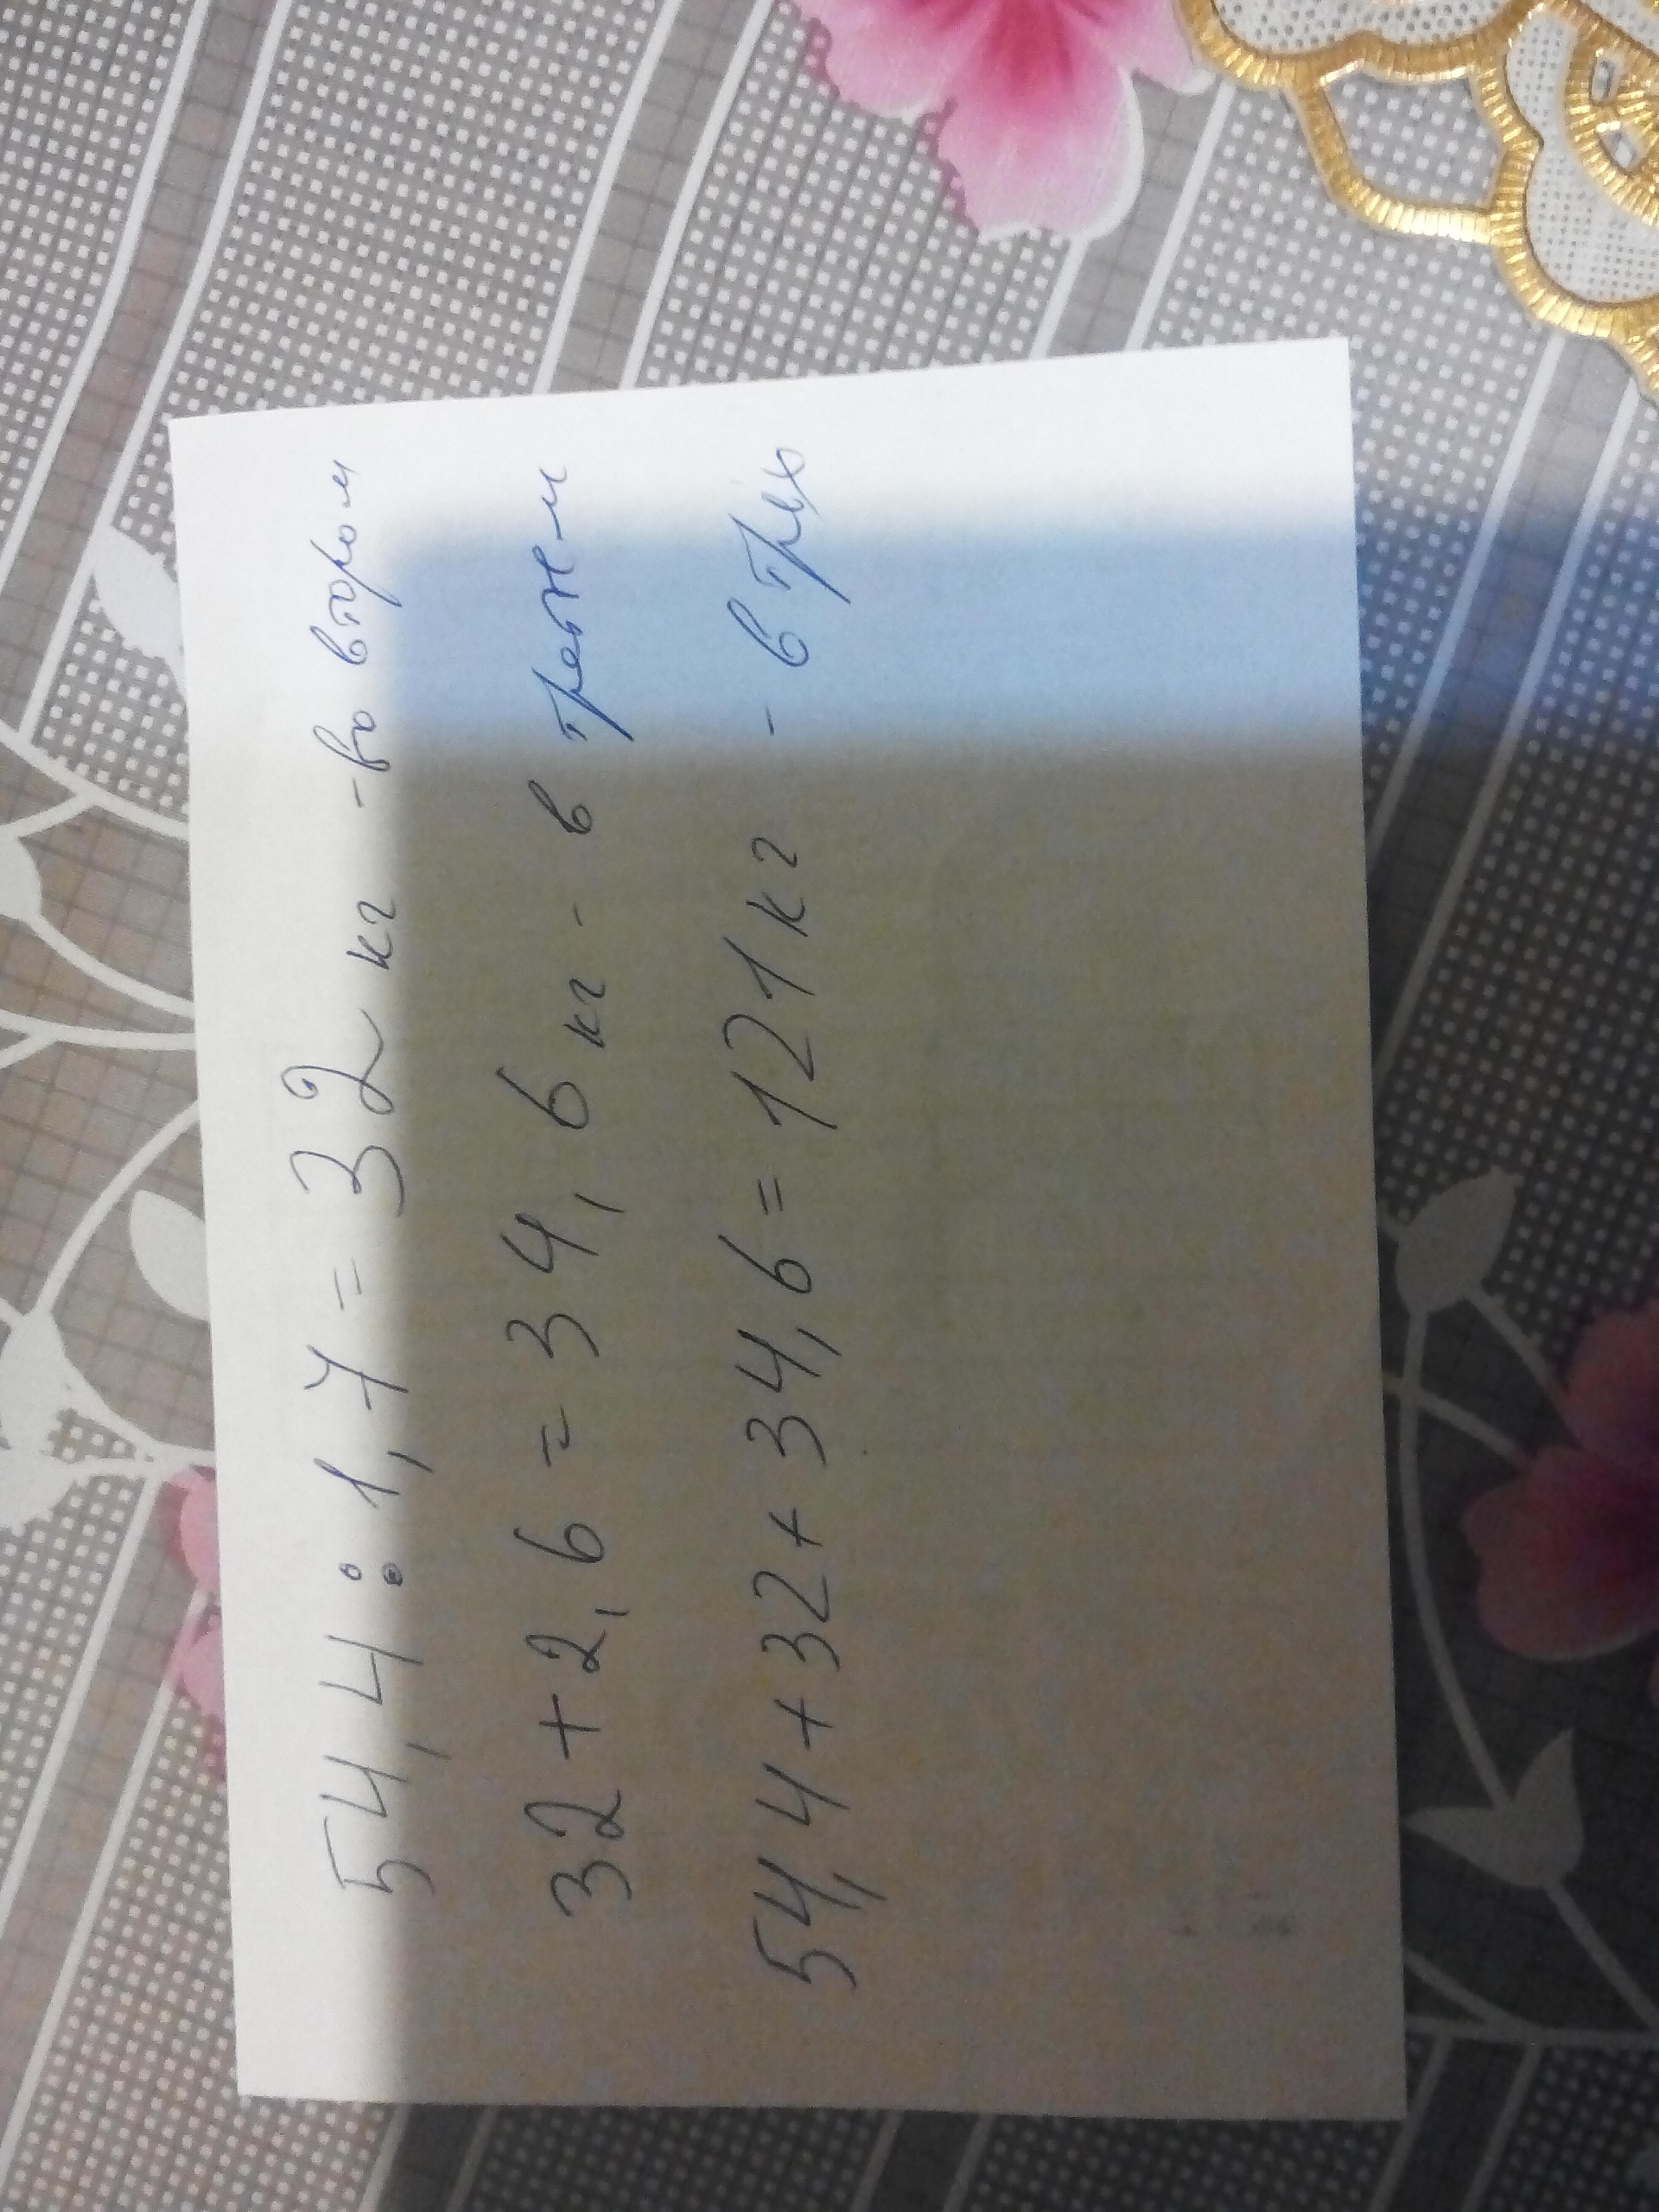 54,4 : 1,7 = 32 кг - во втором
32 + 2,6 = 34,6 кг - в третьем
54,4 + 32 + 34,6 = 121 кг - в трёх